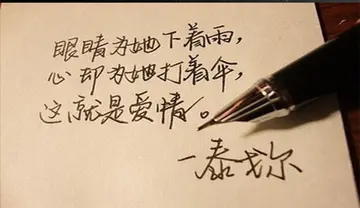 眼睛为她下着雨，
心却为她打着伞，
这就是爱情。
一泰戈尔